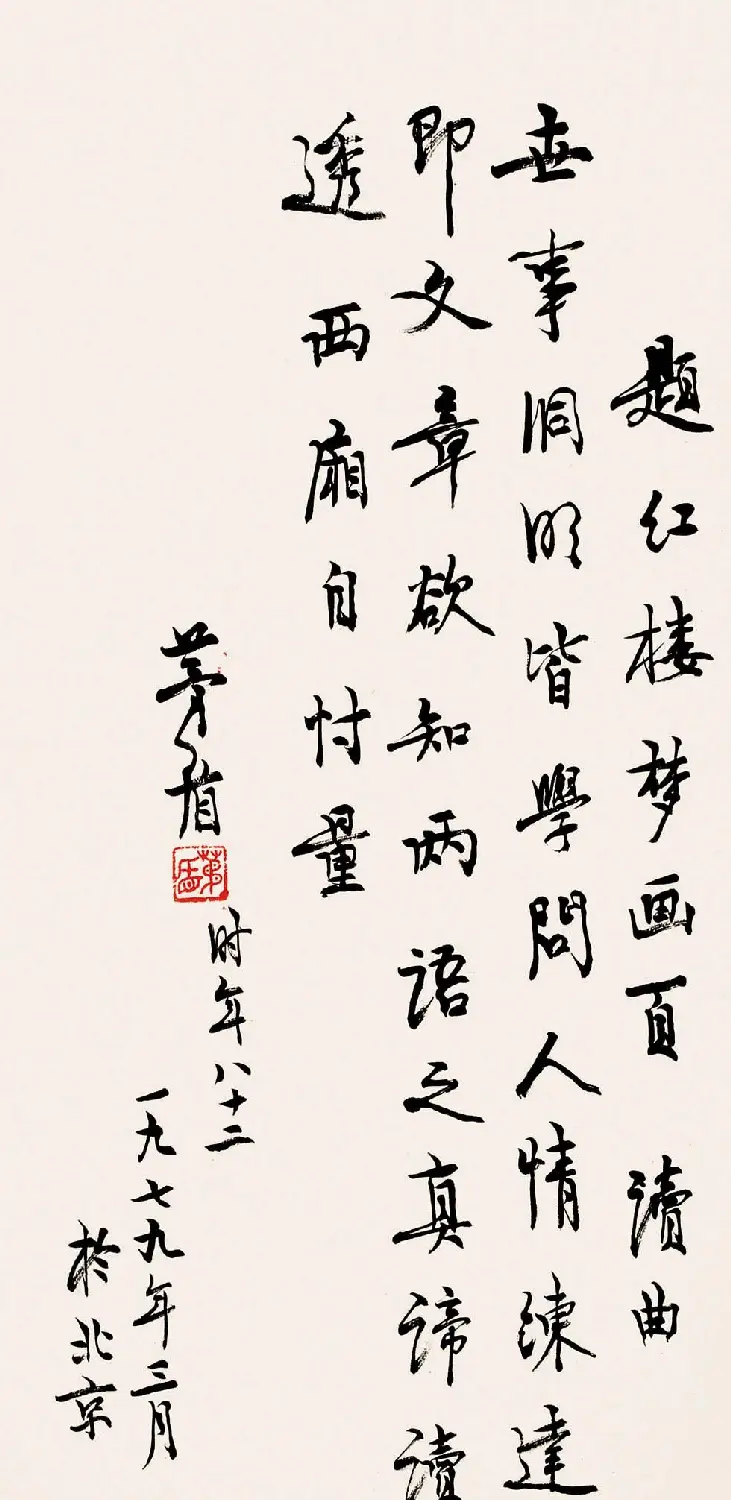 题红楼梦画页 读曲
世事洞明皆學問人情练達
即文章欲知两语之真谛读
透西廂自忖量
茅盾
时年八十二
一九七九年三月
於北京